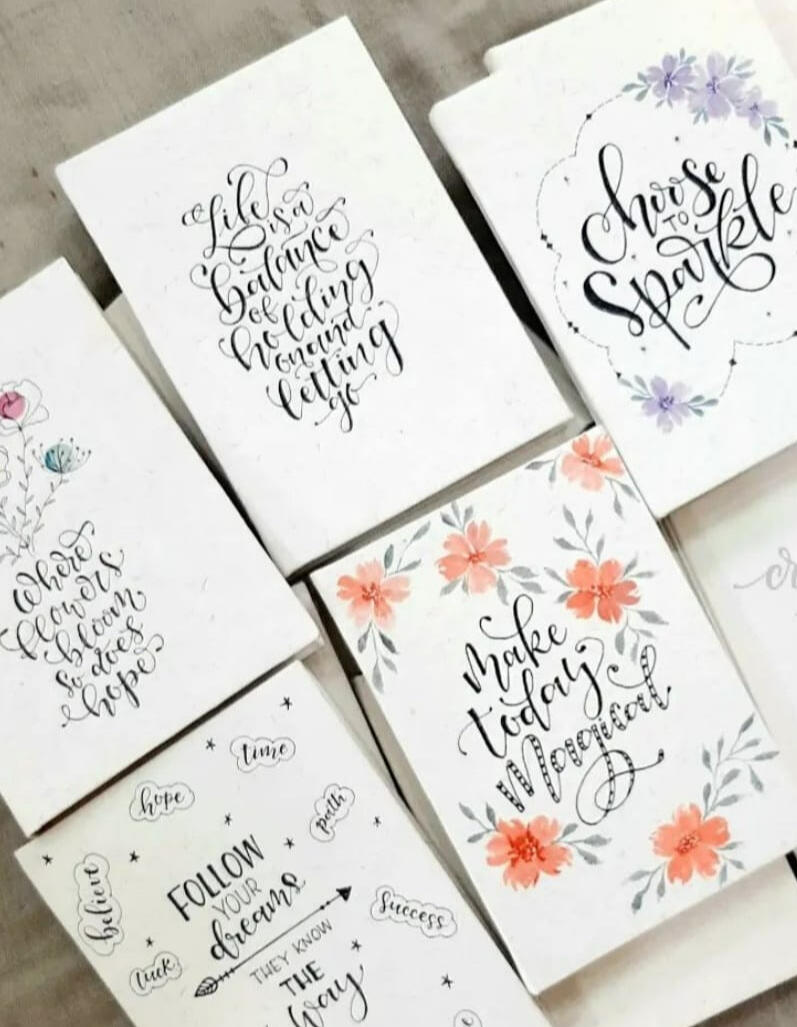 Life
is a
balance
of
holding
on and
letting
go
choose
TO
Sparkle
Where
flowers
bloom
so does
hope.
Make
today
Magical
time
hope
path
believe
FOLLOW
YOUR
dreams
success
luck
THEY KNOW
THE
Way